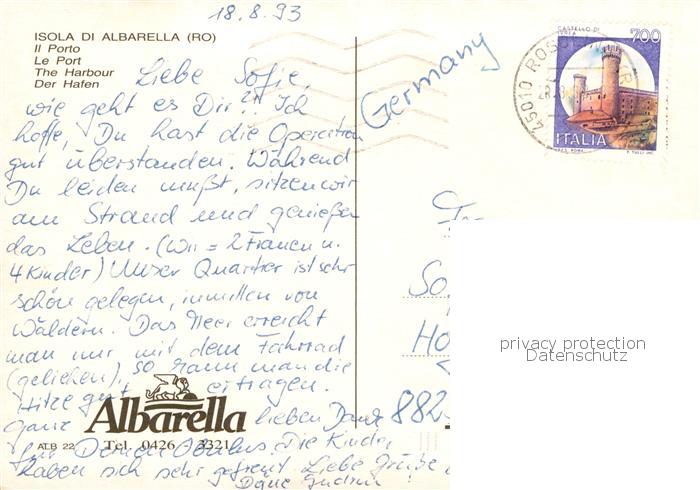 18.8.93
ISOLA DI ALBARELLA (RO)
Il Porto
Le Port
The Harbour
Der Hafen
Liebe Sofie,
wie geht es Dir?! Ich
hoffe, Du hast die Operation
gut überstanden. Während
Du leiden mußt, sitzen wir
am Strand und genießen
das Leben. (Wir = 2 Frauen u.
4 Kinder) Unser Quartier ist sehr
schön gelegen, inmitten von
Wäldern. Das Meer erreicht
man nur mit dem Fahrrad
(geliehen), so kann man die
Hitze gut ertragen.
Ganz lieben Dank
für Deinen
Die Kinder
haben sich sehr gefreut. Liebe Grüße
Deine Gudrun
Albarella
ALB 22
Tel. 0426 3321
Germany
CASTELLO DI
700
ITALIA
45010
Fr
So
Ho
882
privacy protection
Datenschutz